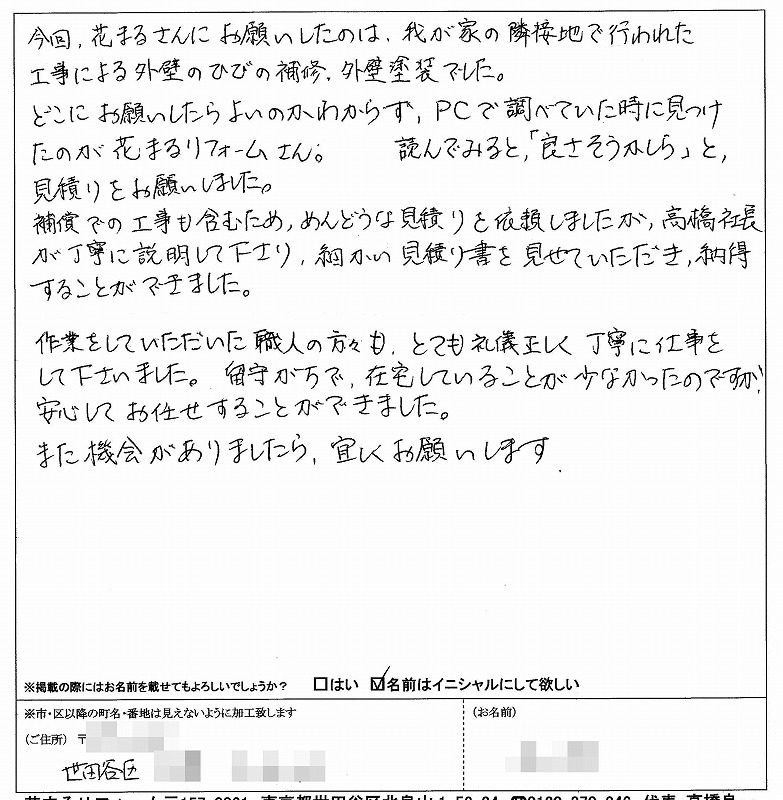 今回、花まるさんにお願いしたのは、我が家の隣接地で行われた
工事による外壁のひびの補修、外壁塗装でした。
どこにお願いしたらよいのかわからず、PCで調べていた時に見つけ
たのが花まるリフォームさん。 読んでみると、「良さそうかしら」と、
見積りをお願いしました。
補償での工事も含むため、めんどうな見積りを依頼しましたが、高橋社長
が丁寧に説明して下さり、細かい見積り書を見せていただき、納得
することができました。
作業をしていただいた職人の方々も、とても礼儀正しく丁寧に仕事を
して下さいました。留守がちで、在宅していることが少なかったのですが、
安心してお任せすることができました。
また機会がありましたら、宜しくお願いします.
※掲載の際にはお名前を載せてもよろしいでしょうか? □はい ☑名前はイニシャルにして欲しい
※市・区以降の町名・番地は見えないように加工致します
(お名前)
(ご住所) 〒
世田谷区